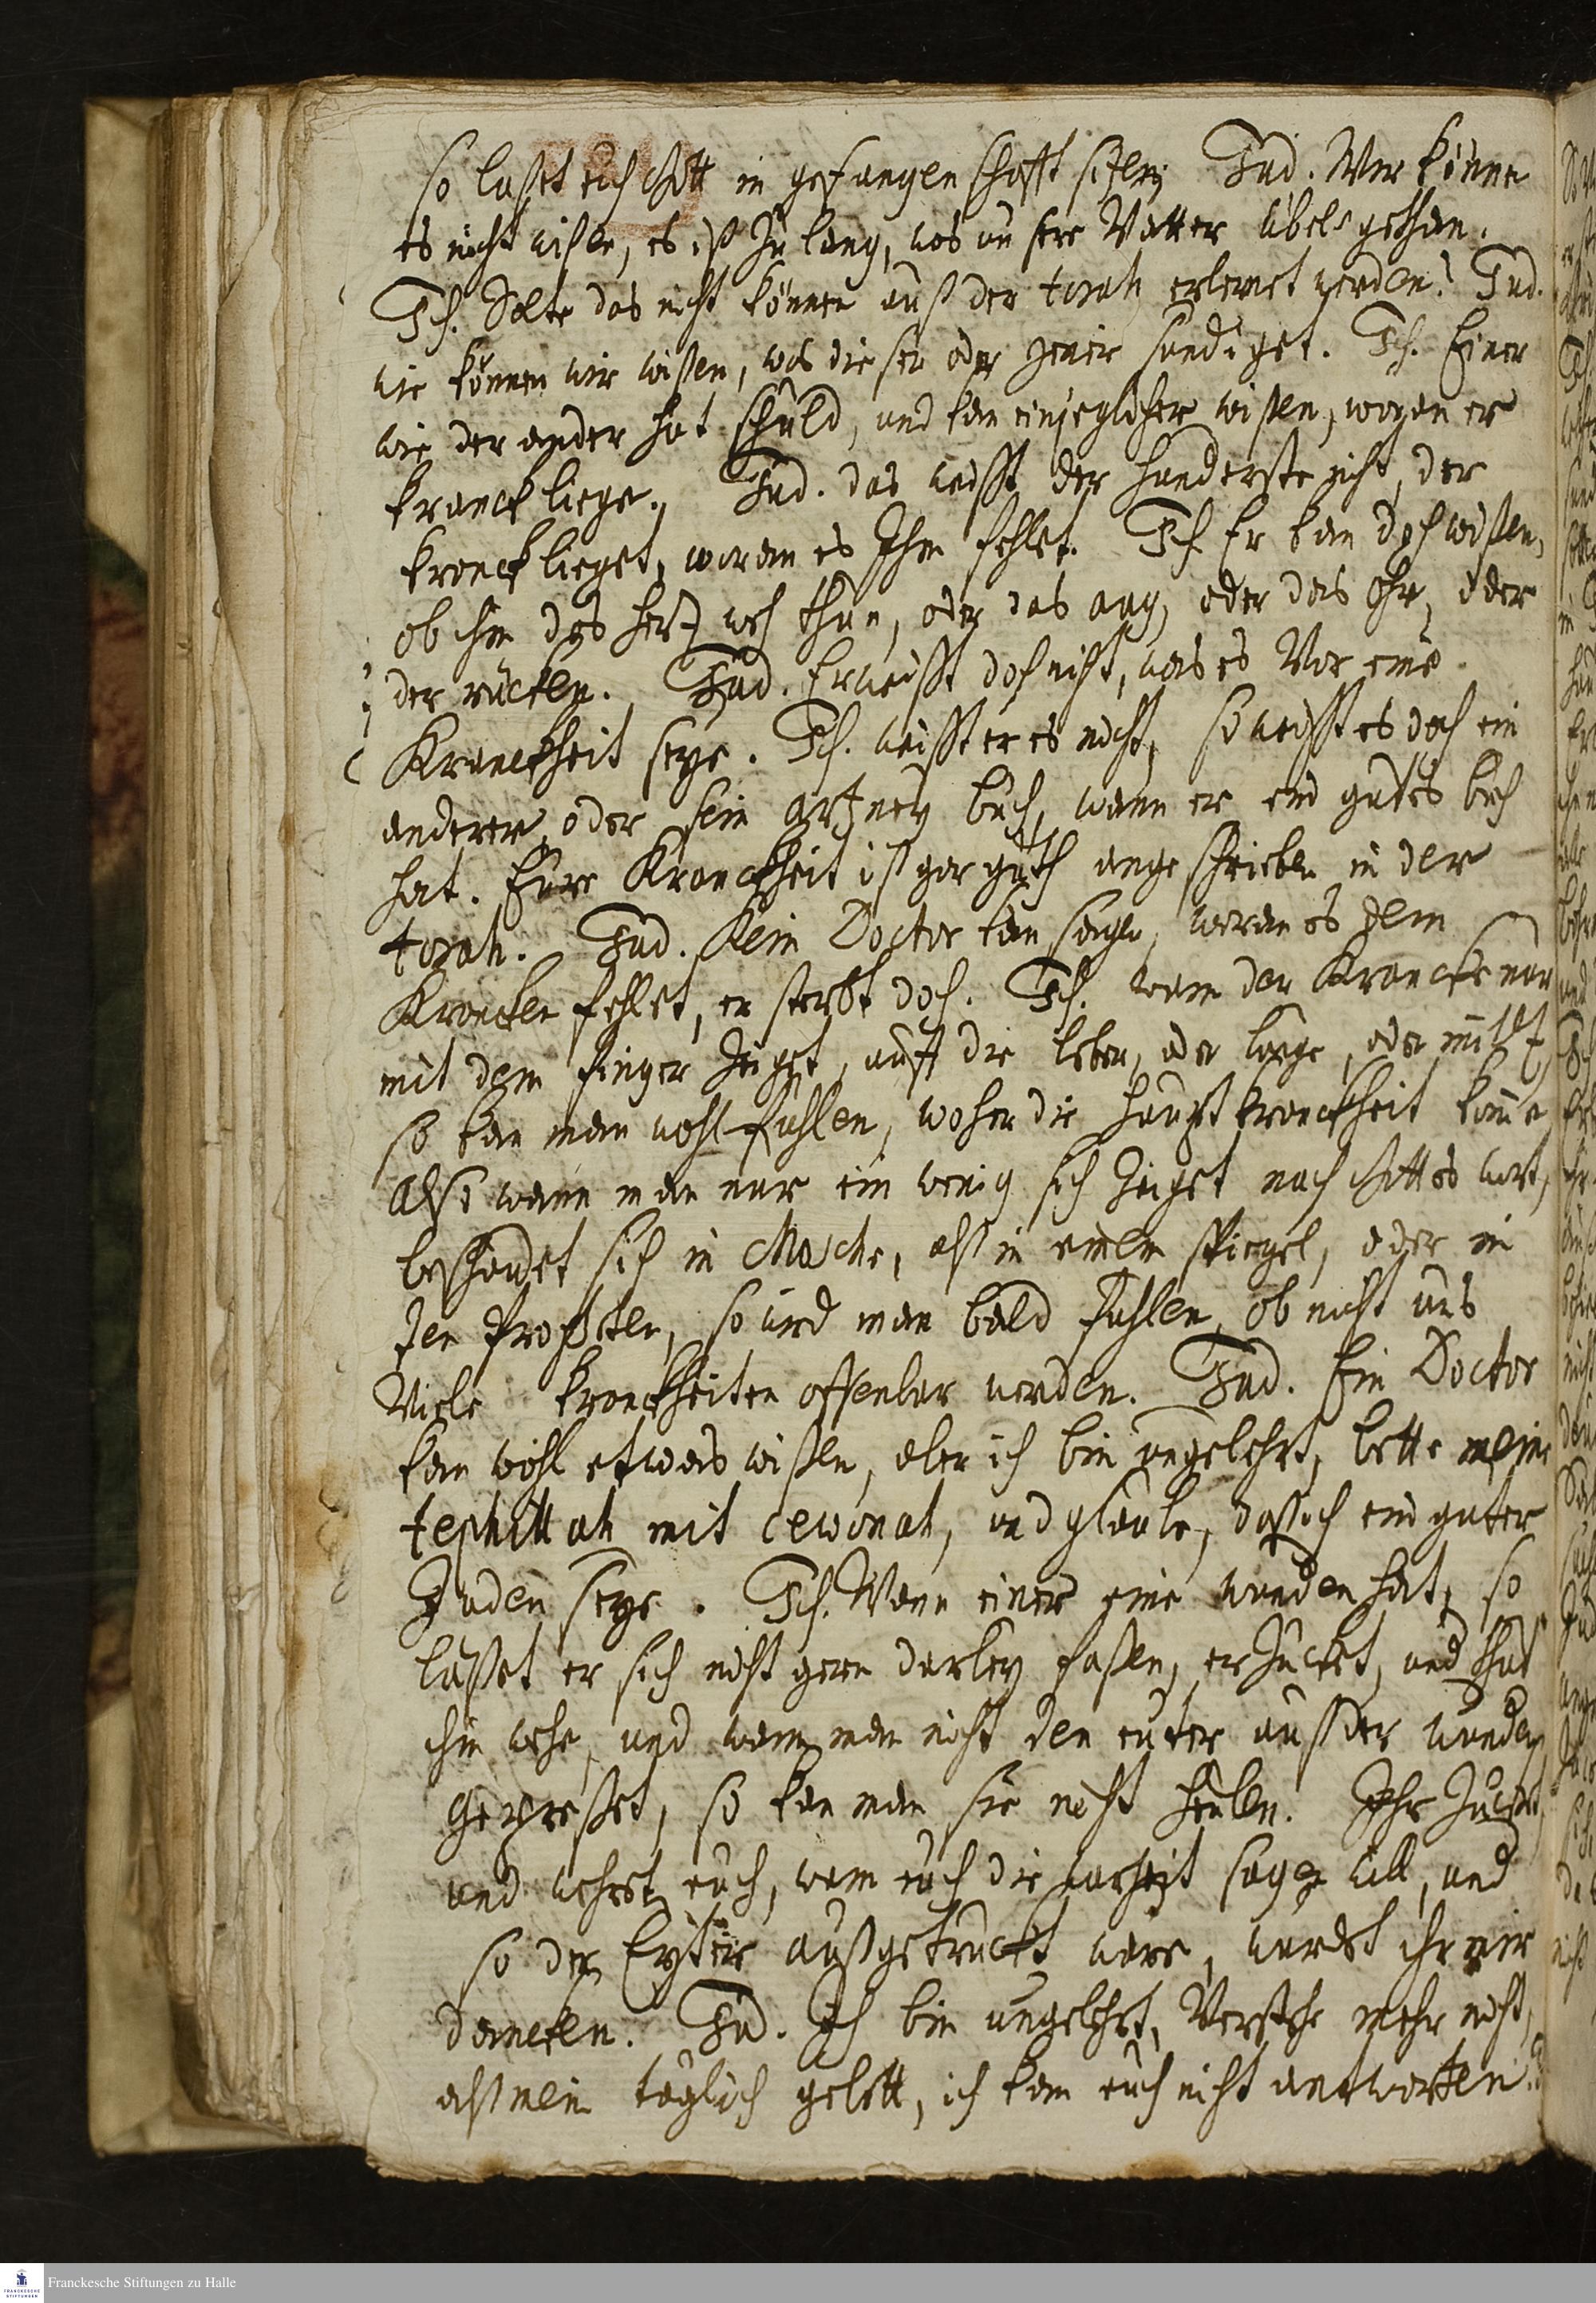 so laßet euch Gott in gefangenschafft sitzen. Jud. Wir können
es nicht wißen, es ist zu lang, was unsere Vätter übels gethan.
Ich. Solte das nicht können auß der torah erlernet werden? Jud.
wie können wir wißen, was dieser oder jener sündiget. Ich. Einer
wie der ander hat schuld, und kan einjeglicher wißen, woran er
kranck liege. Jud. das weisst der hunderste nicht, der
kranck lieget, woran es Ihm fehlet. Ich Er kan doch wißen,
ob ihm das hertz weh thue, oder das aug, oder das Ohr, oder
der rücken. Jud. Er weisst doch nicht, was es Vor eine
Kranckheit seye. Ich. weisst er es nicht, so weisst es doch ein
anderer, oder sein artzney buch, wann er ein gutes buch
hat. Eure Kranckheit ist gar guth angeschrieben in der
torah. Jud. Kein Doctor kan sagen, woran es dem
Krancken fehlet, er sterbt doch. Ich. wann der Krancke nur
mit dem finger zeiget, auff die leber, oder lunge, oder miltz,
so kan man wohl fühlen, woher die hauptkranckheit komme
Also wann man nur ein wenig sich zeiget nach Gottes wort,
beschauet sich in Mosche, alß in einem spiegel, oder in
den Propheten, so wird man bald fühlen, ob nicht uns
Viele kranckheiten offenbar werden. Jud. Ein Doctor
kan wohl etwas wißen, aber ich bin ungelehrt, bette meine
tephillah mit cewonah, und glaube, daß ich ein guter
Juden seye. Ich. Wann einer eine wunden hat, so
laßet er sich nicht gern darbey faßen, er zucket, und thut
ihm wehe, und wann man nicht den euter auß der wunden
gepreßet, so kan man sie nicht heilen. Ihr zucket,
und wehret euch, wann euch die warheit sagen will, und
so der Eyter außgetruckt wäre, würdet ihr mir
dancken. Jud. Ich bin ungelehrt, Verstehe mehr nicht,
alß mein täglich gebett, ich kan euch nicht antworten.
Franckesche Stiftungen zu Halle